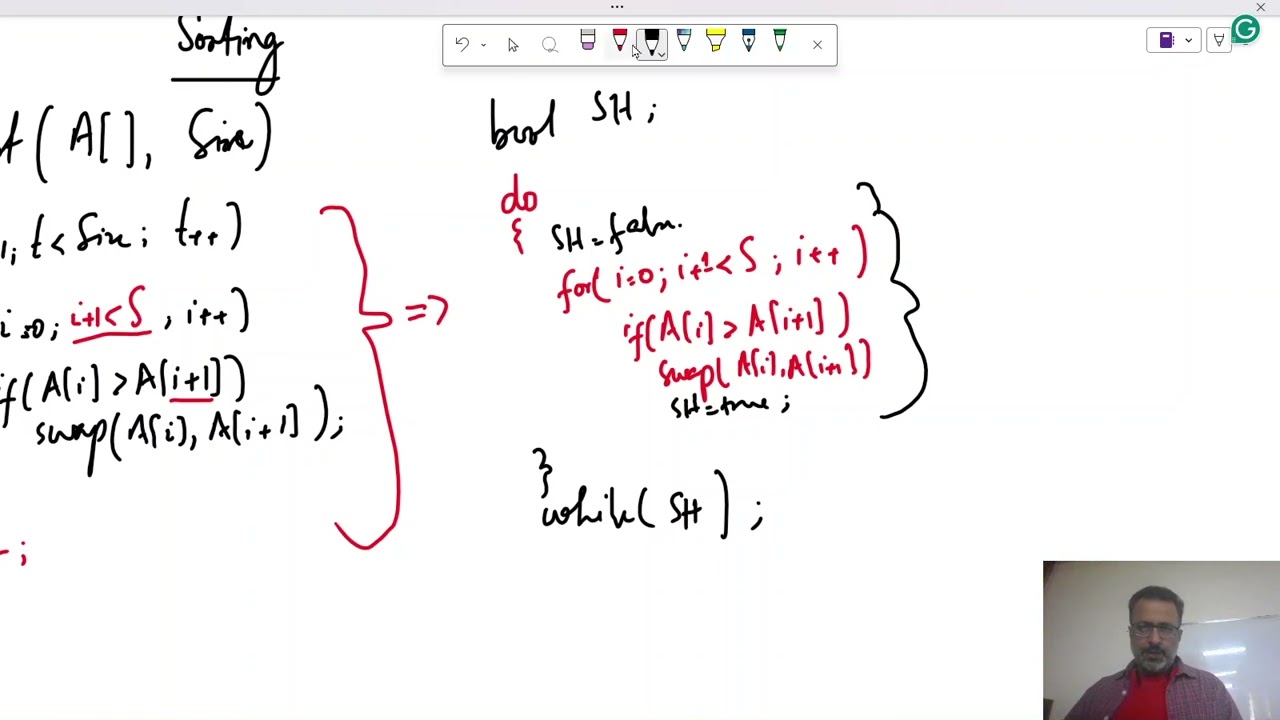 Sorting
t( A[], Size)
1; t< Size; t++)
i=0; i+1<S, i++)
if(A[i] > A[i+1])
swap(A[i], A[i+1]);
;
=>
bool SH;
do
{ SH=false.
for( i=0; i+1<S; i++)
if(A[i] > A[i+1])
swap( A[i], A[i+1])
SH=true;
}
while( SH );
G